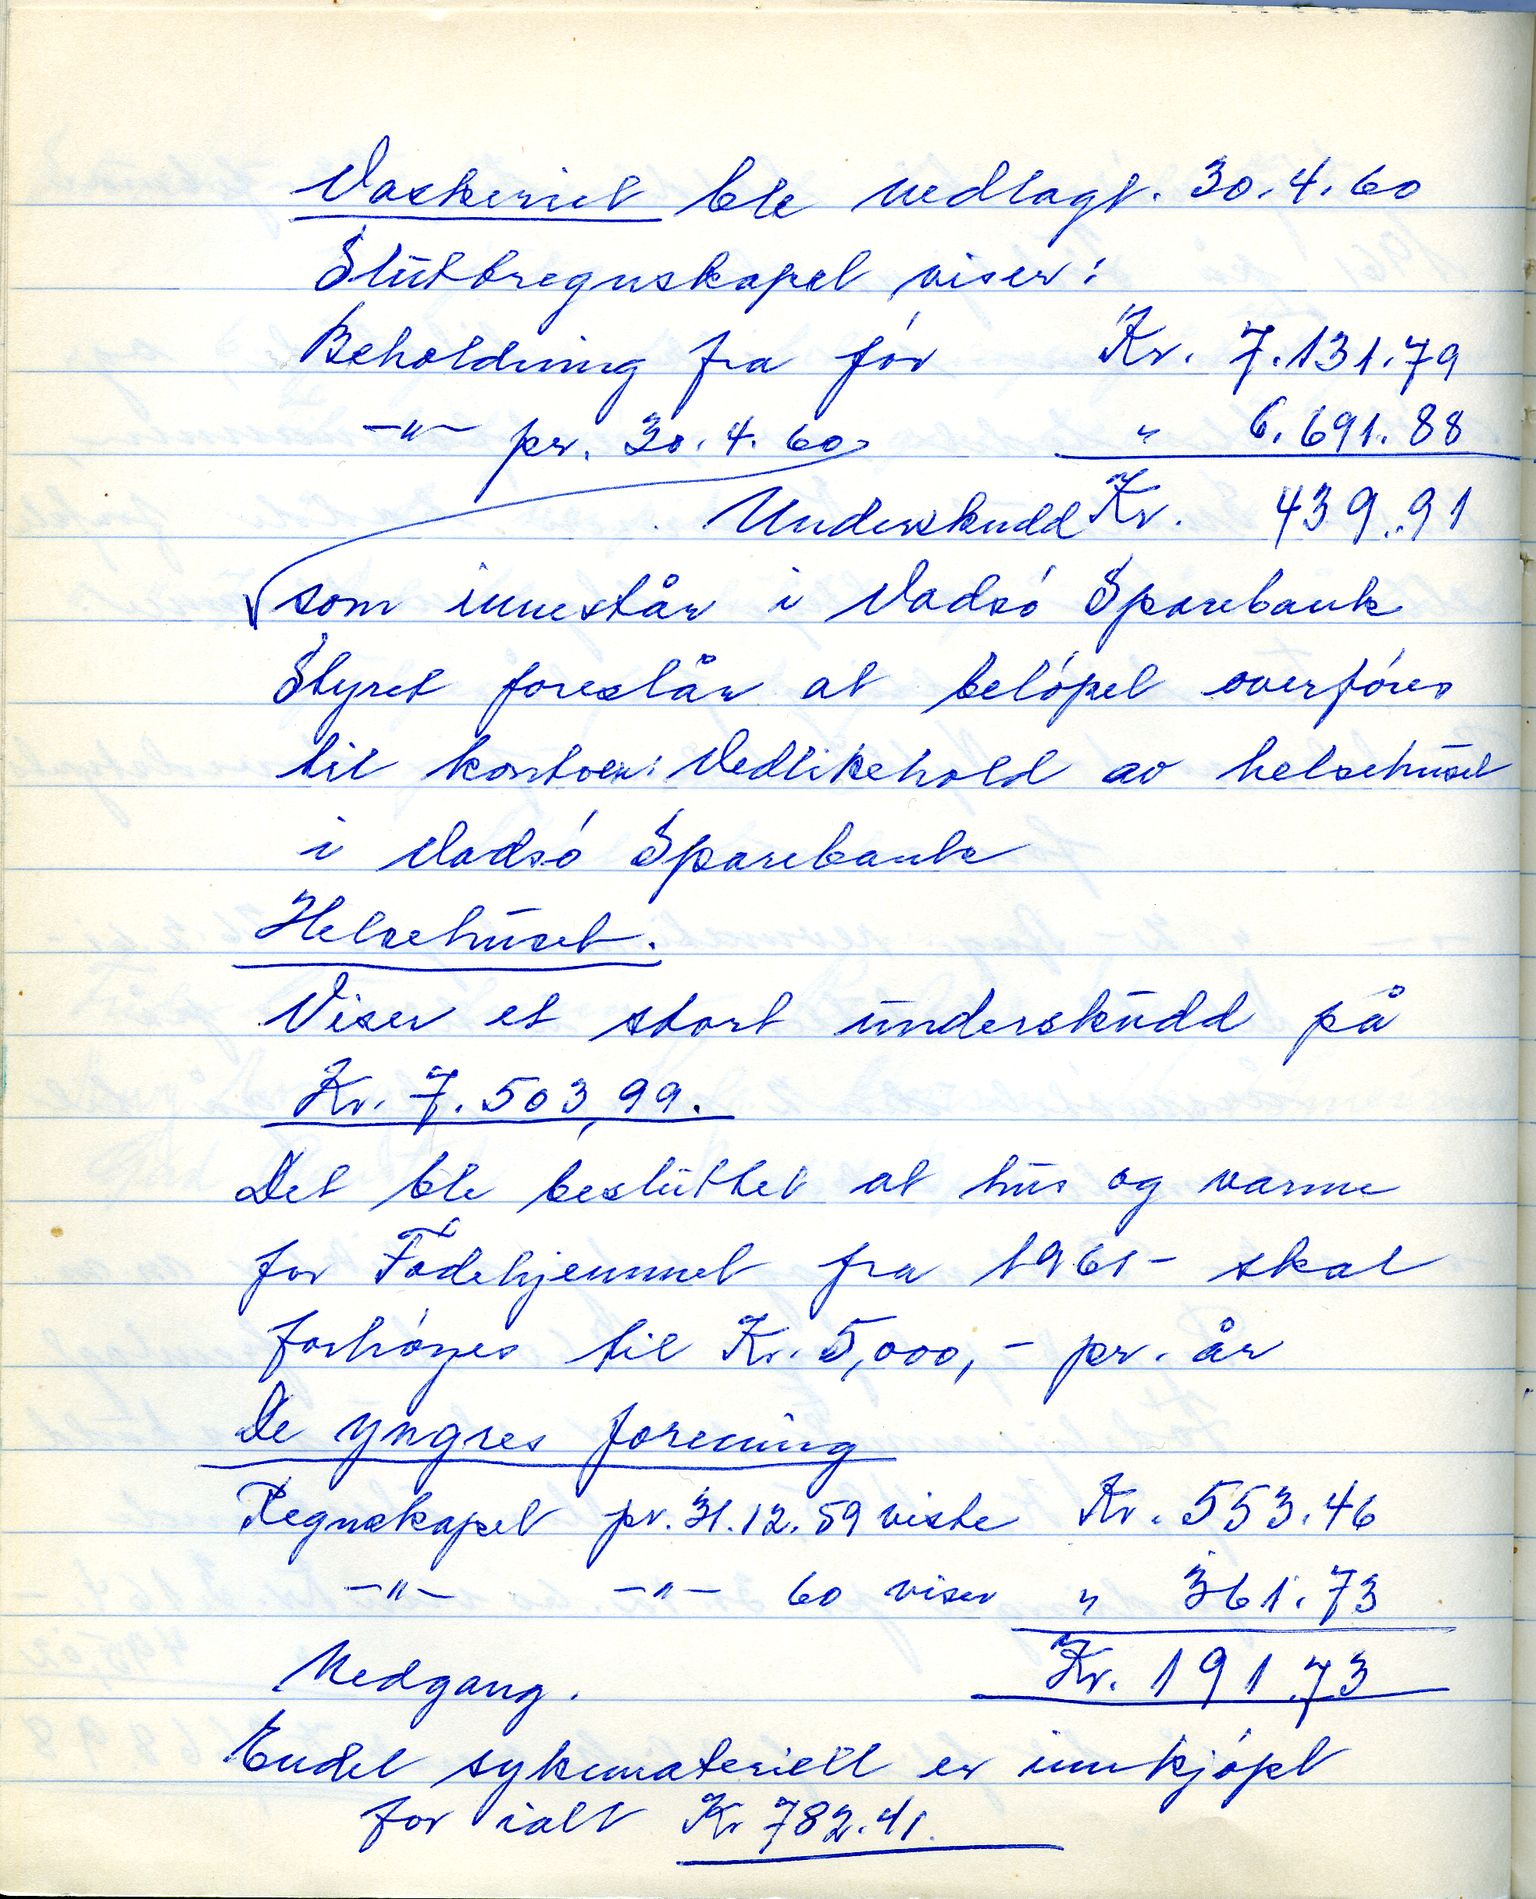 Vaskeriet ble nedlagt. 30.4.60
Sluttregnskapet viser:
Beholdning fra før Kr. 7.131.79
-"- pr. 30.4.60 " 6.691.88
Underskudd Kr. 439.91
som innestår i Vadsø Sparebank
Styret foreslår at beløpet overføres
til kontoen: Vedlikehold av helsehuset
i Vadsø Sparebank
Helsehuset.
Viser et stort underskudd på
Kr. 7.503,99.
Det ble besluttet at hus og varme
for Fødehjemmet fra 1961- skal
forhøyes til Kr. 5,000,- pr. år
De yngres forening
Regnskapet pr. 31.12.59 viste Kr. 553.46
-"- -"- 60 viser " 361.73
Nedgang. Kr. 191.73
Endel sykemateriell er innkjøpt
for ialt Kr 782.41.